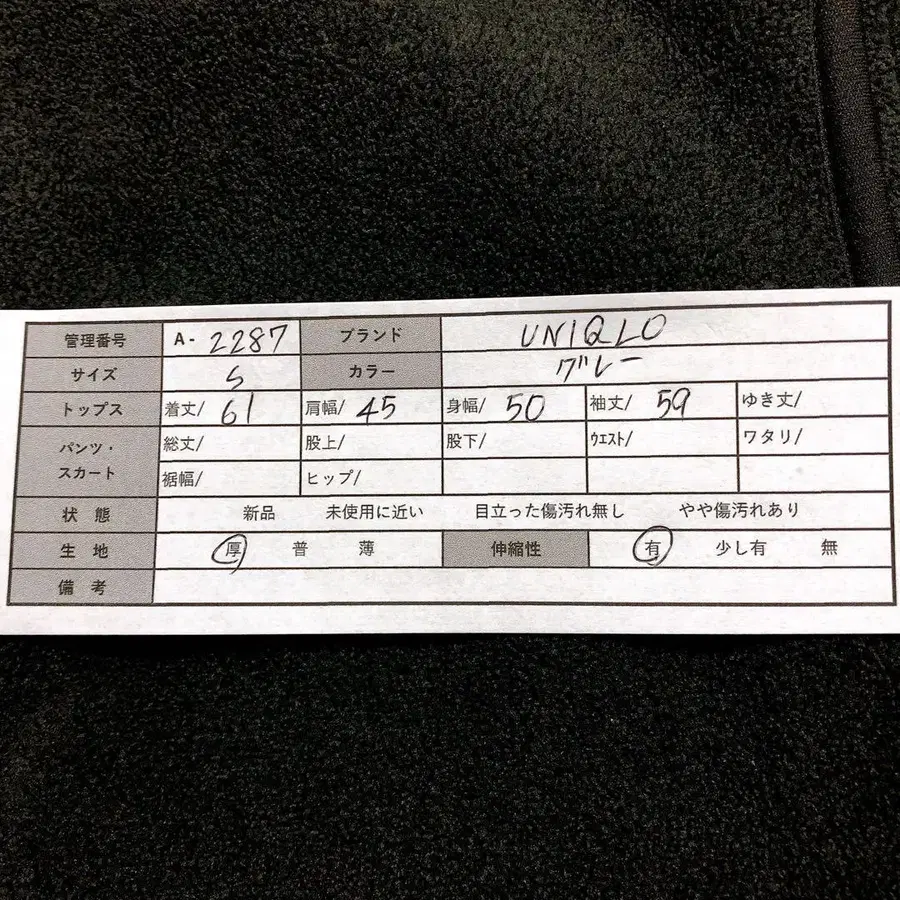 管理番号 A- 2287 ブランド UNIQLO
サイズ S カラー グレー
トップス 着丈/ 61 肩幅/ 45 身幅/ 50 袖丈/ 59 ゆき丈/
パンツ・スカート 総丈/ 股上/ 股下/ ウエスト/ ワタリ/
裾幅/ ヒップ/
状態 新品 未使用に近い 目立った傷汚れ無し やや傷汚れあり
生地 厚 普 薄 伸縮性 有 少し有 無
備考